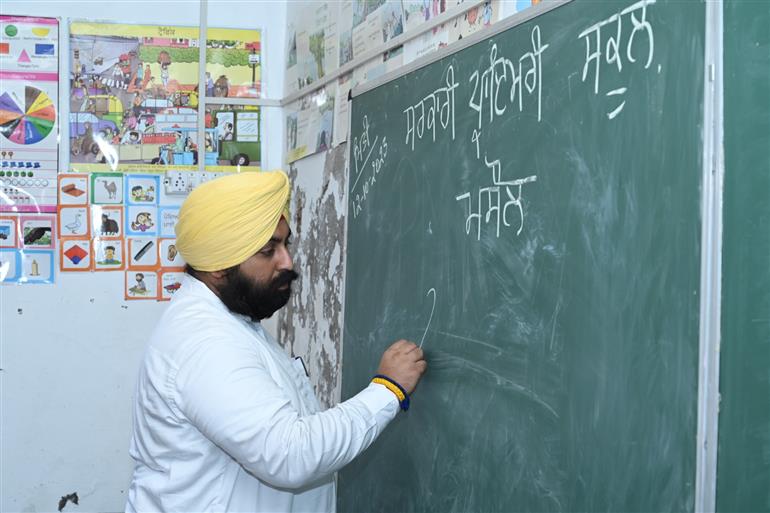 ਮਿਤੀ
12-10-2023
ਸਰਕਾਰੀ ਪ੍ਰਾਇਮਰੀ ਸਕੂਲ.
ਮਸੌਲ